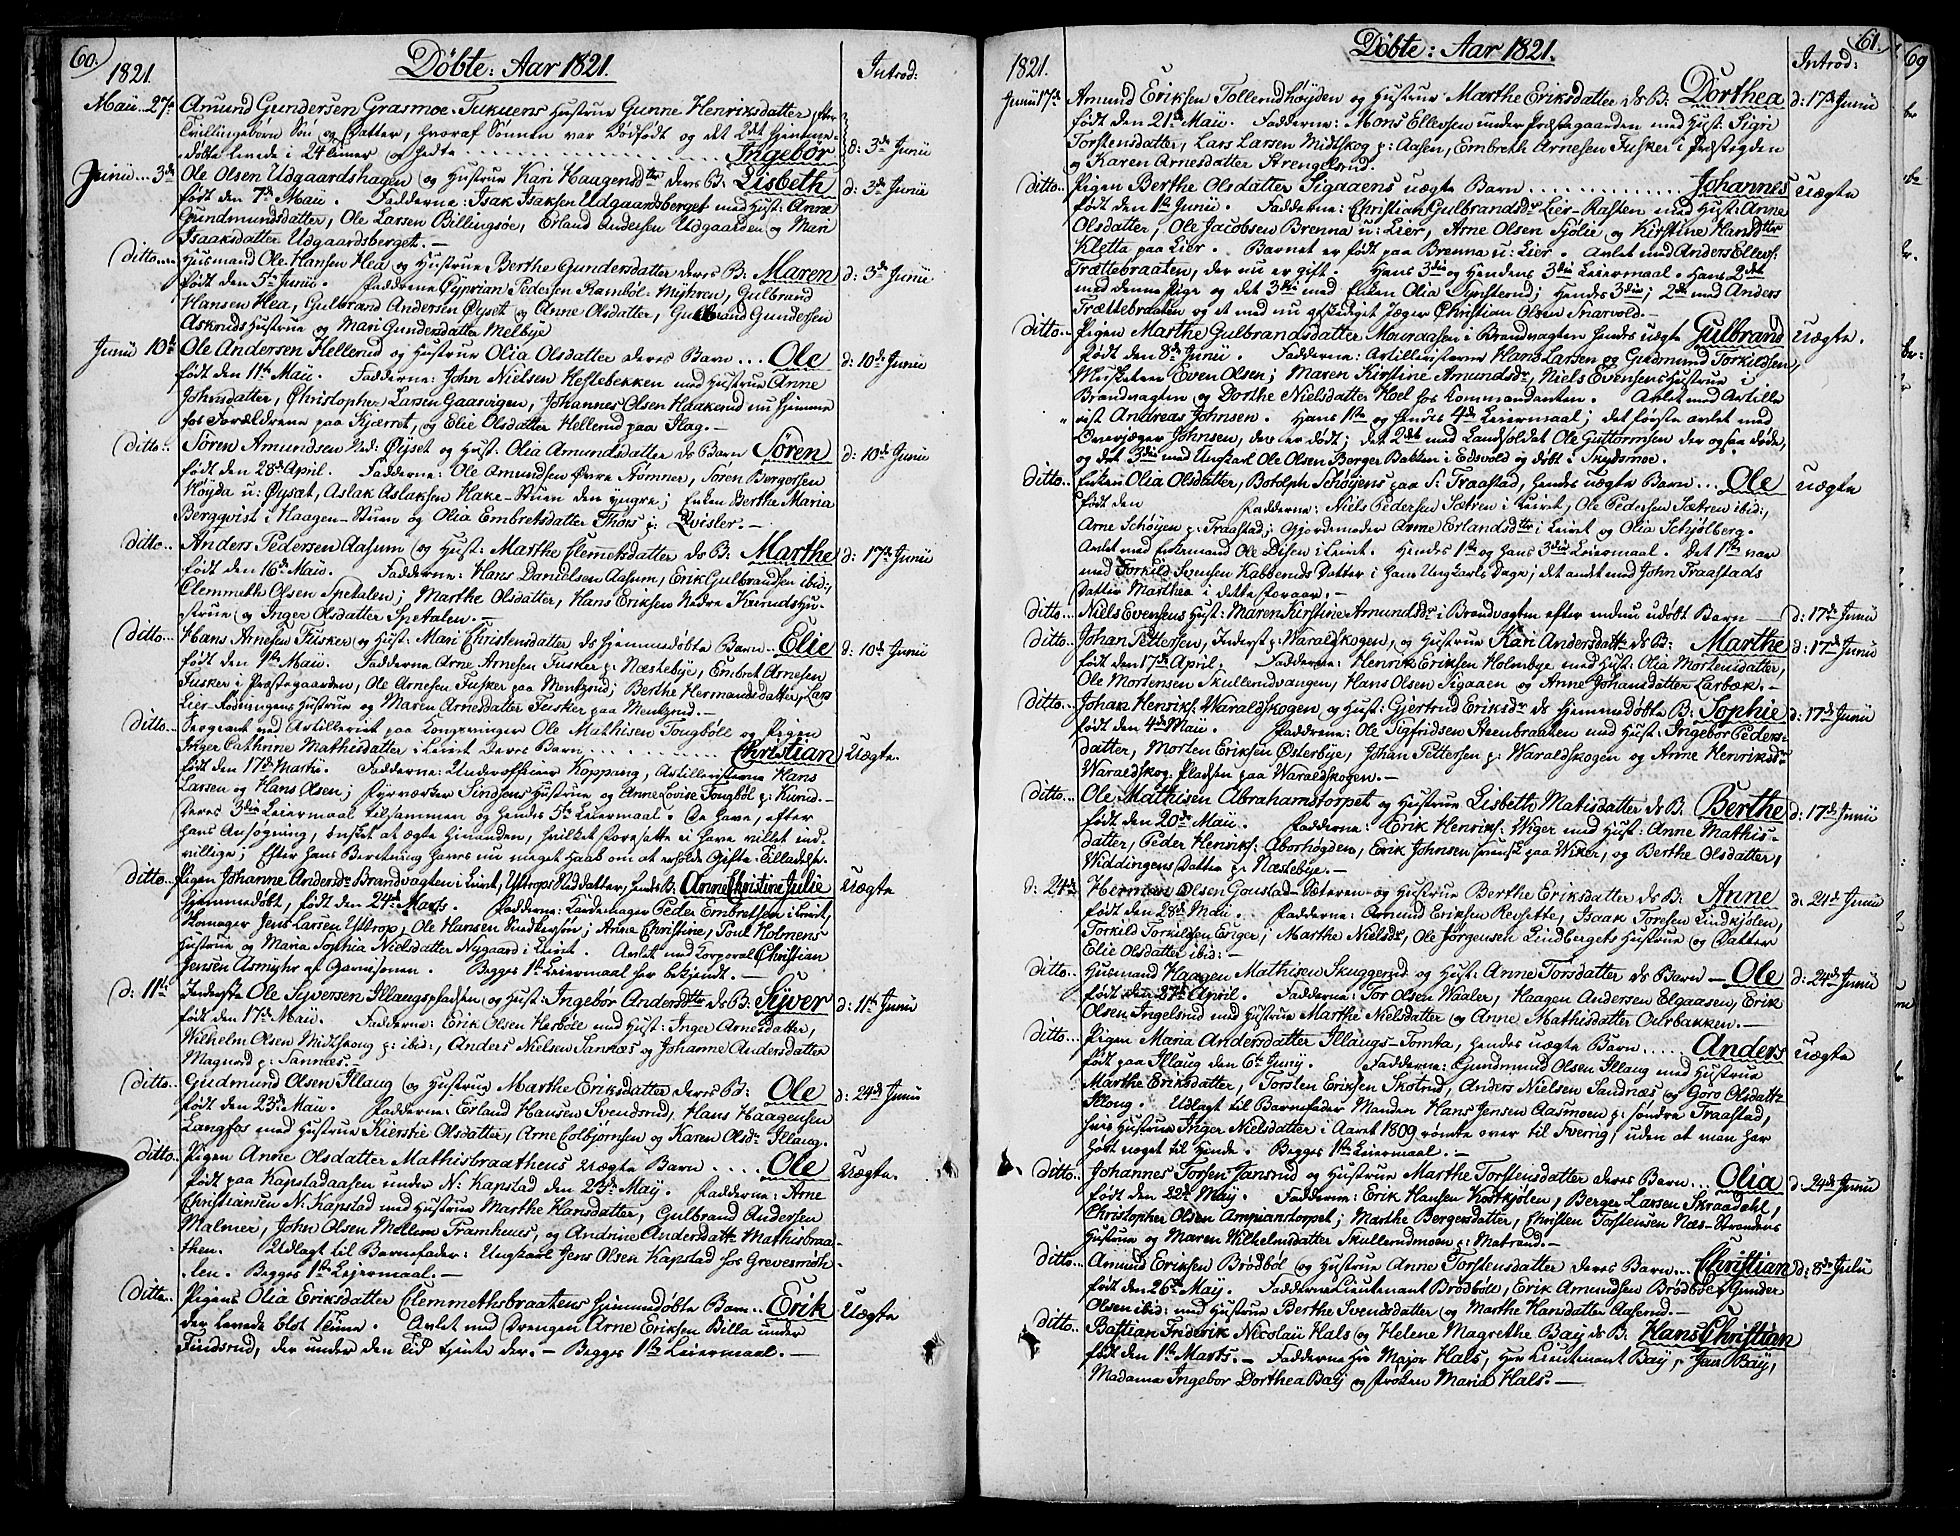 60.
1821.
Döbte: Aar 1821.
Introd:
Maii 27de Amund Gundersen Grasmoe-Tukuens Hustrue Gunne Henriksdatter efter
Tvillingebörn Sön og Datter, hvoraf Sönnen var Dödfödt og det 2det Hjemme-
döbte levede i 24 timer og hedte Ingebör d: 3de Junii
Junii 3de Ole Olsen Udgaardshagen og Hustrue Kari Haagensdtter deres B: Lisbeth d: 3de Junii
födt den 7de Maii. Fadderne: Isak Isaksen Udgaardsberget med Hust: Anne
Gundmundsdatter, Ole Larsen Billingsöe, Erland Andersen Udgaarden og Mari
Isaaksdatter Udgaardsberget. -
ditto Husmand Ole Hansen Hea og Hustrue Berthe Gundersdatter deres B: Maren d: 3de Junii
födt den 5te Junii. Fadderne Cyprian Pedersen Ramböl-Myhren, Gulbrand
Hansen Hea, Gulbrand Andersen Öyset og Anne Olsdatter, Gulbrand Gundersen
Askruds Hustrue og Mari Gundersdatter Melbye
Junii 10de Ole Andersen Hellerud og Hustrue Olia Olsdatter deres Barn ... Ole d: 10de Junii
födt den 11te Maii. Fadderne: John Nielsen Heftebekken med Hustrue Anne
Johnsdatter, Christopher Larsen Gaarvigen, Johannes Olsen Haakerud nu hjemme
hos Forældrene paa Kjerret, og Elie Olsdatter Hellerud paa Flag. -
ditto Sören Amundsen Ned: Öyset og Hust: Olia Amundsdatter ds Barn Sören d: 10de Junii
födt den 28de April. Fadderne: Ole Amundsen Övre Tömner, Sören Bergersen
Höyda u: Öyset, Aslak Aslaksen Hake-Stuen den yngre; Enken Berthe Maria
Bergqvist i Haagen-Stuen og Olia Embretsdatter Thors p: Qvisler. -
ditto Anders Pedersen Aasum og Hust: Marthe Clemetsdatter ds B: Marthe d: 17de Junii
födt den 16de Maii. Fadderne: Hans Danielsen Aasum, Erik Gulbrandsen ibid:,
Clemmeth Olsen Spetalen; Marthe Olsdatter, Hans Eriksen Nedre Kurudshu-
strue og Inger Olsdatter Spetalen. -
ditto Hans Arnesen Fusker og Hust: Mari Christensdatter ds hjemmedöbte Barn .. Elie d: 10de Junii
födt den 1ste Maii. Fadderne Arne Arnesen Fusker p: Næstebye, Embret Arnesen
Fusker i Præstegaarden, Ole Arnesen Fusker paa Menkrud; Berthe Hermandsdatter, Lars
Lier-Rodningens Hustrue og Maren Arnesdatter Fusker paa Menkrud. -
ditto Sergeant ved Artilleriet paa Kongsvinger Ole Mathisen Tougböl og Pigen
Inger Cathrine Mathisdatter i Leiret deres Barn Christian Uægte.
födt den 17de Martii. Fadderne: Underofficeer Kopping, Artilleristerne Hans
Larsen og Hans Olsen; Fyrværker Sindsens Hustrue og Anne Lovise Tougböl p: Kurud. -
Deres 3die Leiermaal tilsammen og hendes 5te Leiermaal. De have, efter
hans Ansögning, önsket at ægte hinanden, hvilket Foresatte ei have villet ind-
villige; efter hans Beretning haves nu meget Haab om at erholde Gifte-Tilladelse.
ditto Pigen Johanne Andersdr Brandvagten i Leiret, Ustrops Sted datter, hendes B: Anne Christine Julie Uægte
Hjemmedöbt, födt den 24de Marts. Fadderne: Kardemager Peder Embretsen i Leiret,
Skomager Jens Larsen Ustrop, Ole Hansen Lindkersen; Anne Christine, Poul Holmens
Hustrue og Maria Sophia Nielsdatter Nygaard i Leiret. Avlet med Korporal Christian
Jensen Asmyhr af Garnisonen. Begges 1ste Leiermaal her bekjendt. -
d: 11te Inderste Ole Syversen Illaugspladsen og Hust: Ingebör Andersdtter ds B: Syver d: 11te Junii
födt den 17de Maii. Fadderne: Erik Olsen Herböle med Hust: Inger Arnesdatter,
Wilhelm Olsen Midtskoug p: ibid:, Anders Nielsen Sannæs og Johanne Andersdatter
Magnord p: Sannæs.
ditto Gudmund Olsen Illaug og Hustrue Marthe Eriksdatter deres B: Ole d: 24de Junii
födt den 23de Maii. Fadderne: Erland Hansen Svendsrud, Hans Haagensen
Langfos med Hustrue Kierstie Olsdatter, Arne Colbjörnsen og Karen Olsdr Illaug.
ditto Pigen Anne Olsdatter Mathisbraathens Uægte Barn .... Ole Uægte.
födt paa Kapstadaasen under N: Kapstad den 23de May. Fadderne: Arne
Christiansen N: Kapstad med Hustrue Marthe Hansdatter, Gulbrand Andersen
Malmer, John Olsen Mellem Framhuus, og Andrine Andersdatter Mathisbraa-
then. Udlagt til Barnefader: Ungkarl Jens Olsen Kapstad hos Grevesmöh-
len. Begges 1ste Leiermaal. -
ditto Pigens Olia Eriksdatter Clemmethsbraatens hjemmedöbte Barn .. Erik Uægte
der levede blot 1 time. Avlet med Drengen Arne Eriksen Billa under
Findsrud, der under den Tid tjente der. - Begges 1ste Leiermaal. -
61.
1821.
Döbte: Aar 1821.
Introd:
Junii 17de Amund Eriksen Tollerudhöyden og Hustrue Marthe Eriksdatter ds B: Dorthea d: 17de Junii
födt den 21de Maii. Fadderne: Mons Ellevsen under Præstegaarden med Hust: Sigri
Torstensdatter, Lars Larsen Midtskog p: Aasen, Embreth Arnesen Fusker i Præstegden
og Karen Arnesdatter Strengelsrud.
ditto Pigen Berthe Olsdatter Sigaaens uægte Barn Johannes Uægte
födt den 1ste Junii. Fadderne: Christian Gulbrandsdr Lier-Rasten med Hust: Anne
Olsdatter, Ole Jacobsen Brenna u: Lier, Arne Olsen Sjölie og Kirstine Hansdtter
Kletta paa Lier. Barnet er födt paa Brenna u: Lier. Avlet med Anders Ellevs:
Trættebraaten, der nu er gift. Hans 3die og Hendes 3die Leiermaal. Hans 2det
med denne Pige og det 3die med Enken Olia Tynsterud; Hendes 3die; 2de med Anders
Trættebraaten og et med nu afskediget Jæger Christian Olsen Snarvold. -
ditto Pigen Marthe Gulbrandsdatter Mouraasen i Brandvagten hendes uægte Gulbrand Uægte.
födt den 8de Junii. Fadderne: Artilleristerne Hans Larsen og Gudmund Torkildsen,
Musketeer Even Olsen; Maren Kirstine Amundsdr, Niels Evensens Hustrue i
Brandvagten og Dorthe Nielsdatter Hoel hos Kommandanten. Avlet med Artille
rist Andreas Johnsen. Hans 1ste og hendes 4de Leiermaal; det förste avlet med
Overjæger Johnsen, der er död; det 2det med Landsoldat Ole Guttormsen der ogsaa döde,
og det 3die med Ungkarl Ole Olsen Berger Bakken i Eidsvold og döbt i Skydsmoe.
ditto Enken Olia Olsdatter, Botolph Schöyens paa S: Traastad, hendes uægte Barn .. Ole Uægte
födt den Fadderne: Niels Pedersen Sætren i Leiret, Ole Pedersen Sætren ibid:,
Arne Schöyen p: Traastad; Gjordemoder Anne Erlandsdtter i Leiret og Olia Schjölberg.
Avlet med Enkemand Ole Disen i Leiret. Hendes 1ste og hans 3die Leiermaal. Det 1ste var
med Torkild Svensen Kabberuds Datter i hans Ungkarls Dage; det andet med John Traastads
Datter Marthea i dette Foraar. -
ditto Niels Evensens Hust: Maren Kirstine Amundsdr i Brandvagten efter endnu udöbt Barn - d: 17de Junii
ditto Johan Pettersen, Inderst p: Waraldskogen, og Hustrue Kari Andersdatter ds B: Marthe d: 17de Junii
födt den 17de April. Fadderne: Henrik Eriksen Holmbye med Hust: Olia Mortensdatter,
Ole Mortensen Skullerudvangen, Hans Olsen Sigaaen og Anne Johansdatter Larbæk. -
ditto Johan Henriks: Waraldskogen og Hust: Gjertrud Eriksdr ds Hjemmedöbte B: Sophie d: 17de Junii
födt den 4de Maii. Fadderne: Ole Sigfridsen Steenbraaten med Hust: Ingebor Peders-
datter, Morten Eriksen Österbye, Johan Pettersen p: Waraldskogen og Anne Henriksdr
Waraldskog-Pladsen paa Waraldskogen. -
ditto Ole Mathisen Abrahamstorpet og Hustrue Lisbeth Matisdatter ds B: Berthe d: 17de Junii
födt den 20de Maii. Fadderne: Erik Henriks: Wiger med Hust: Anne Mathis-
datter, Peder Henriks: Aborhögden, Erik Johnsen svensk paa Wiker, og Berthe Olsdatter,
Widdingens Datter p: Næstebye. -
d: 24de Herman Olsen Goustad-Peteren og Hustrue Berthe Eriksdatter ds B: Anne d: 24de Junii
födt den 28de Maii. Fadderne: Amund Eriksen Revsette, Isaak Toresen Lindkjölen,
Torkild Torkildsen Eriger; Marthe Nielsdr, Ole Jörgensen Lindbergets Hustrue og Datter
Elie Olsdatter ibid: -
ditto Husmand Haagen Mathisen Skuggerud og Hust: Anne Torsdatter ds Barn - Ole d: 24de Junii
födt den 27de April. Fadderne: Tor Olsen Waaler, Haagen Andersen Elgaasen, Erik
Olsen Ingelsrud med Hustrue Marthe Nielsdatter og Anne Mathisdatter Ourbakken. -
ditto Pigen Maria Andersdatter Illaugs-Tomta, hendes uægte Barn ..... Anders Uægte
födt paa Illaug den 6te Juny. Fadderne: Gundmund Olsen Illaug med Hustrue
Marthe Eriksdatter, Torsten Eriksen Skotrud, Anders Nielsen Sandnæs og Goro Olsdatt:
Illoug. Udlagt til Barnefader Manden Hans Jensen Aasmoen p: söndre Traastad,
hvis Hustrue Inger Nielsdatter i Aaret 1809 römte over til Sverrig, uden at man har
hört noget til hende. Begges 1ste Leiermaal. -
ditto Johannes Torsen Jansrud og Hustrue Marthe Torstensdatter deres Barn ... Olia d: 24de Junii
födt den 22de May. Fadderne: Erik Hansen Kortkjölen, Berger Larsen Skraadahl,
Christopher Olsen Ampianstorpet; Marthe Bergersdatter, Christen Torstensen Næs-Strandens
Hustrue og Maren Wilhelmsdatter Skullerudmoen p: Matrand. -
ditto Amund Eriksen Brödböl og Hustrue Anne Torstensdatter deres Barn .. Christian d: 8de Julii
födt den 26de May. Fadderne Lieutenant Brödböll, Erik Amundsen Brödböl, Gunder
Olsen ibid: med Hustrue Berthe Svendsdatter og Marthe Hansdatter Aaserud. -
ditto Bastian Friderik Nicolaii Hals og Helene Magrethe Bay ds B: Hans Christian
födt den 1ste Marts. - Fadderne Hr Major Hals, Hr Lieutenant Bay, Jens Bay,
Madame Ingebor Dorthea Bay og Fröken Maria Hals. -
69